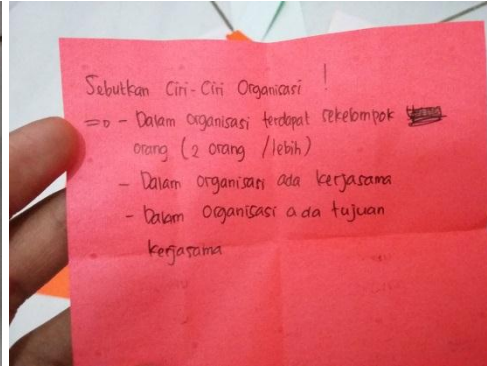 Sebutkan Ciri-Ciri Organisasi !
=> - Dalam organisasi terdapat sekelompok
orang (2 orang /lebih)
- Dalam organisasi ada kerjasama
- Dalam organisasi ada tujuan
kerjasama